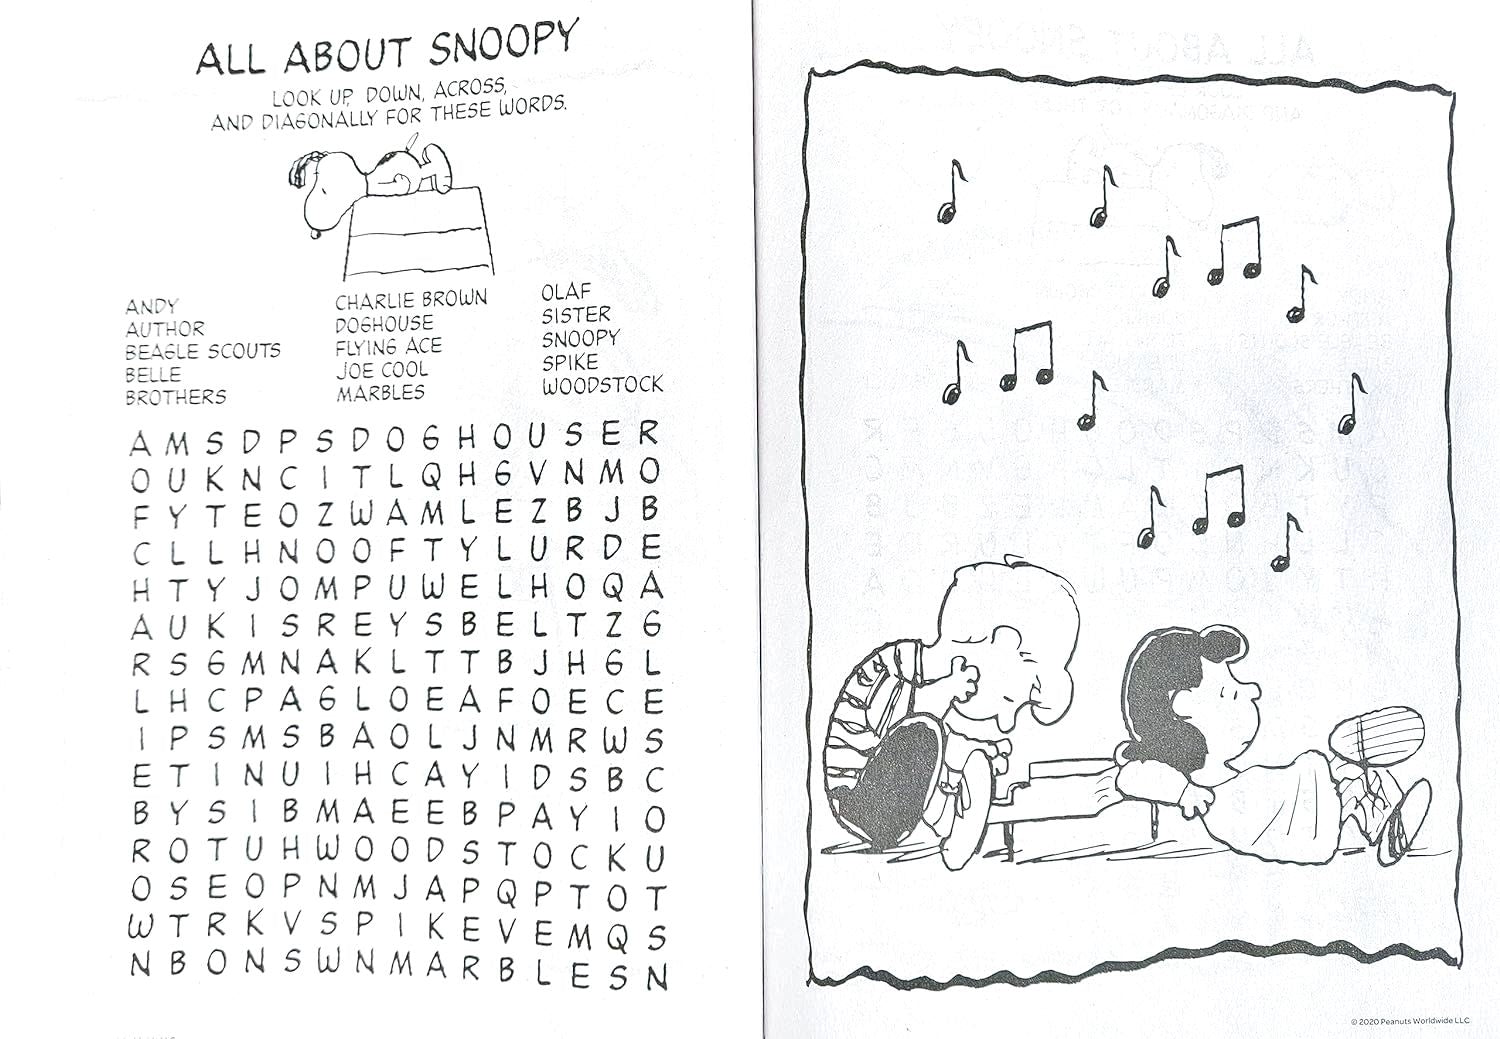 ALL ABOUT SNOOPY
LOOK UP, DOWN, ACROSS,
AND DIAGONALLY FOR THESE WORDS.
ANDY
AUTHOR
BEAGLE SCOUTS
BELLE
BROTHERS
CHARLIE BROWN
DOGHOUSE
FLYING ACE
JOE COOL
MARBLES
OLAF
SISTER
SNOOPY
SPIKE
WOODSTOCK
A M S D P S D O G H O U S E R
O U K N C I T L Q H G V N M O
F Y T E O Z W A M L E Z B J B
C L L H N O O F T Y L U R D E
H T Y J O M P U W E L H O Q A
A U K I S R E Y S B E L T Z G
R S G M N A K L T T B J H G L
L H C P A G L O E A F O E C E
I P S M S B A O L J N M R W S
E T I N U I H C A Y I D S B C
B Y S I B M A E E B P A Y I O
R O T U H W O O D S T O C K U
O S E O P N M J A P Q P T O T
W T R K V S P I K E V E M Q S
N B O N S W N M A R B L E S N
© 2020 Peanuts Worldwide LLC